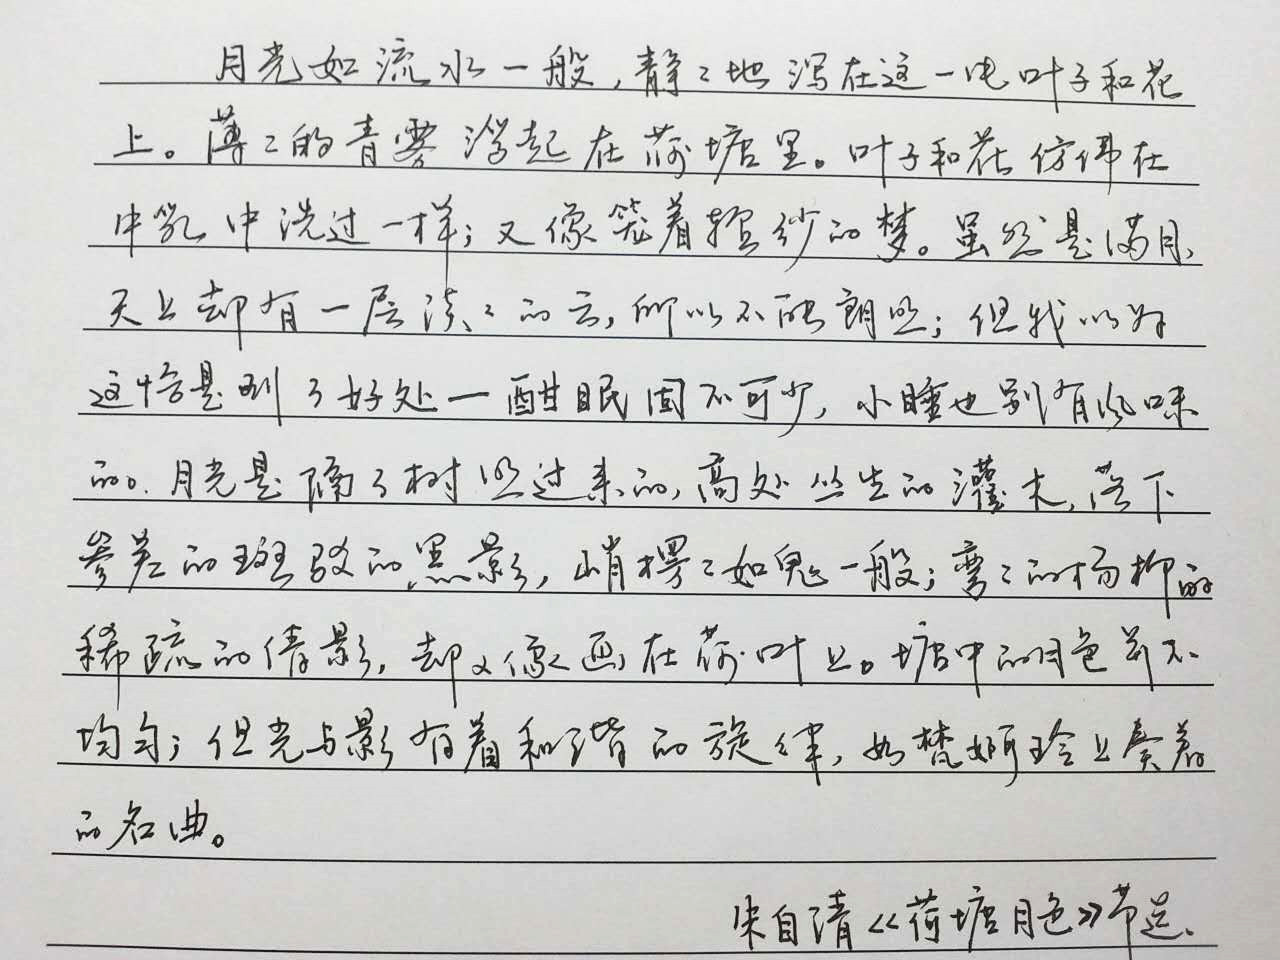 月光如流水一般，静〻地泻在这一片叶子和花
上。薄〻的青雾浮起在荷塘里。叶子和花仿佛在
牛乳中洗过一样；又像笼着轻纱的梦。虽然是满月，
天上却有一层淡〻的云，所以不能朗照；但我以为
这恰是到了好处一酣眠固不可少，小睡也别有风味
的。月光是隔了树照过来的，高处丛生的灌木，落下
参差的斑驳的黑影，峭楞〻如鬼一般；弯〻的杨柳的
稀疏的倩影，却又像画在荷叶上。塘中的月色并不
均匀；但光与影有着和谐的旋律，如梵婀玲上奏着
的名曲。
朱自清《荷塘月色》节选、